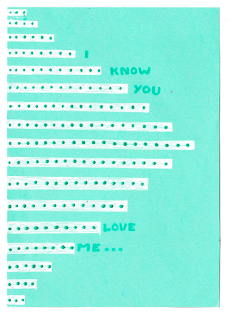 I
KNOW
YOU
LOVE
ME...